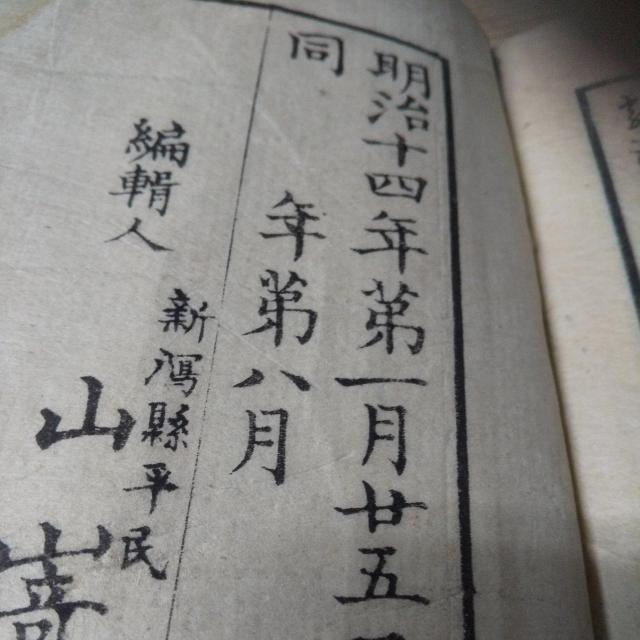 明治十四年第一月廿五日
同　年第八月
編輯人
新潟縣平民
山嵜